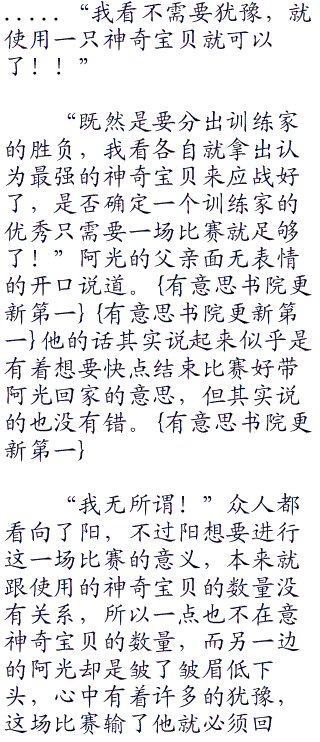 .....“我看不需要犹豫，就
使用一只神奇宝贝就可以
了！！”
“既然是要分出训练家
的胜负，我看各自就拿出认
为最强的神奇宝贝来应战好
了，是否确定一个训练家的
优秀只需要一场比赛就足够
了！”阿光的父亲面无表情
的开口说道。{有意思书院更
新第一}{有意思书院更新第
一}他的话其实说起来似乎是
有着想要快点结束比赛好带
阿光回家的意思，但其实说
的也没有错。{有意思书院更
新第一}
“我无所谓！”众人都
看向了阳，不过阳想要进行
这一场比赛的意义，本来就
跟使用的神奇宝贝的数量没
有关系，所以一点也不在意
神奇宝贝的数量，而另一边
的阿光却是皱了皱眉低下
头，心中有着许多的犹豫，
这场比赛输了他就必须回